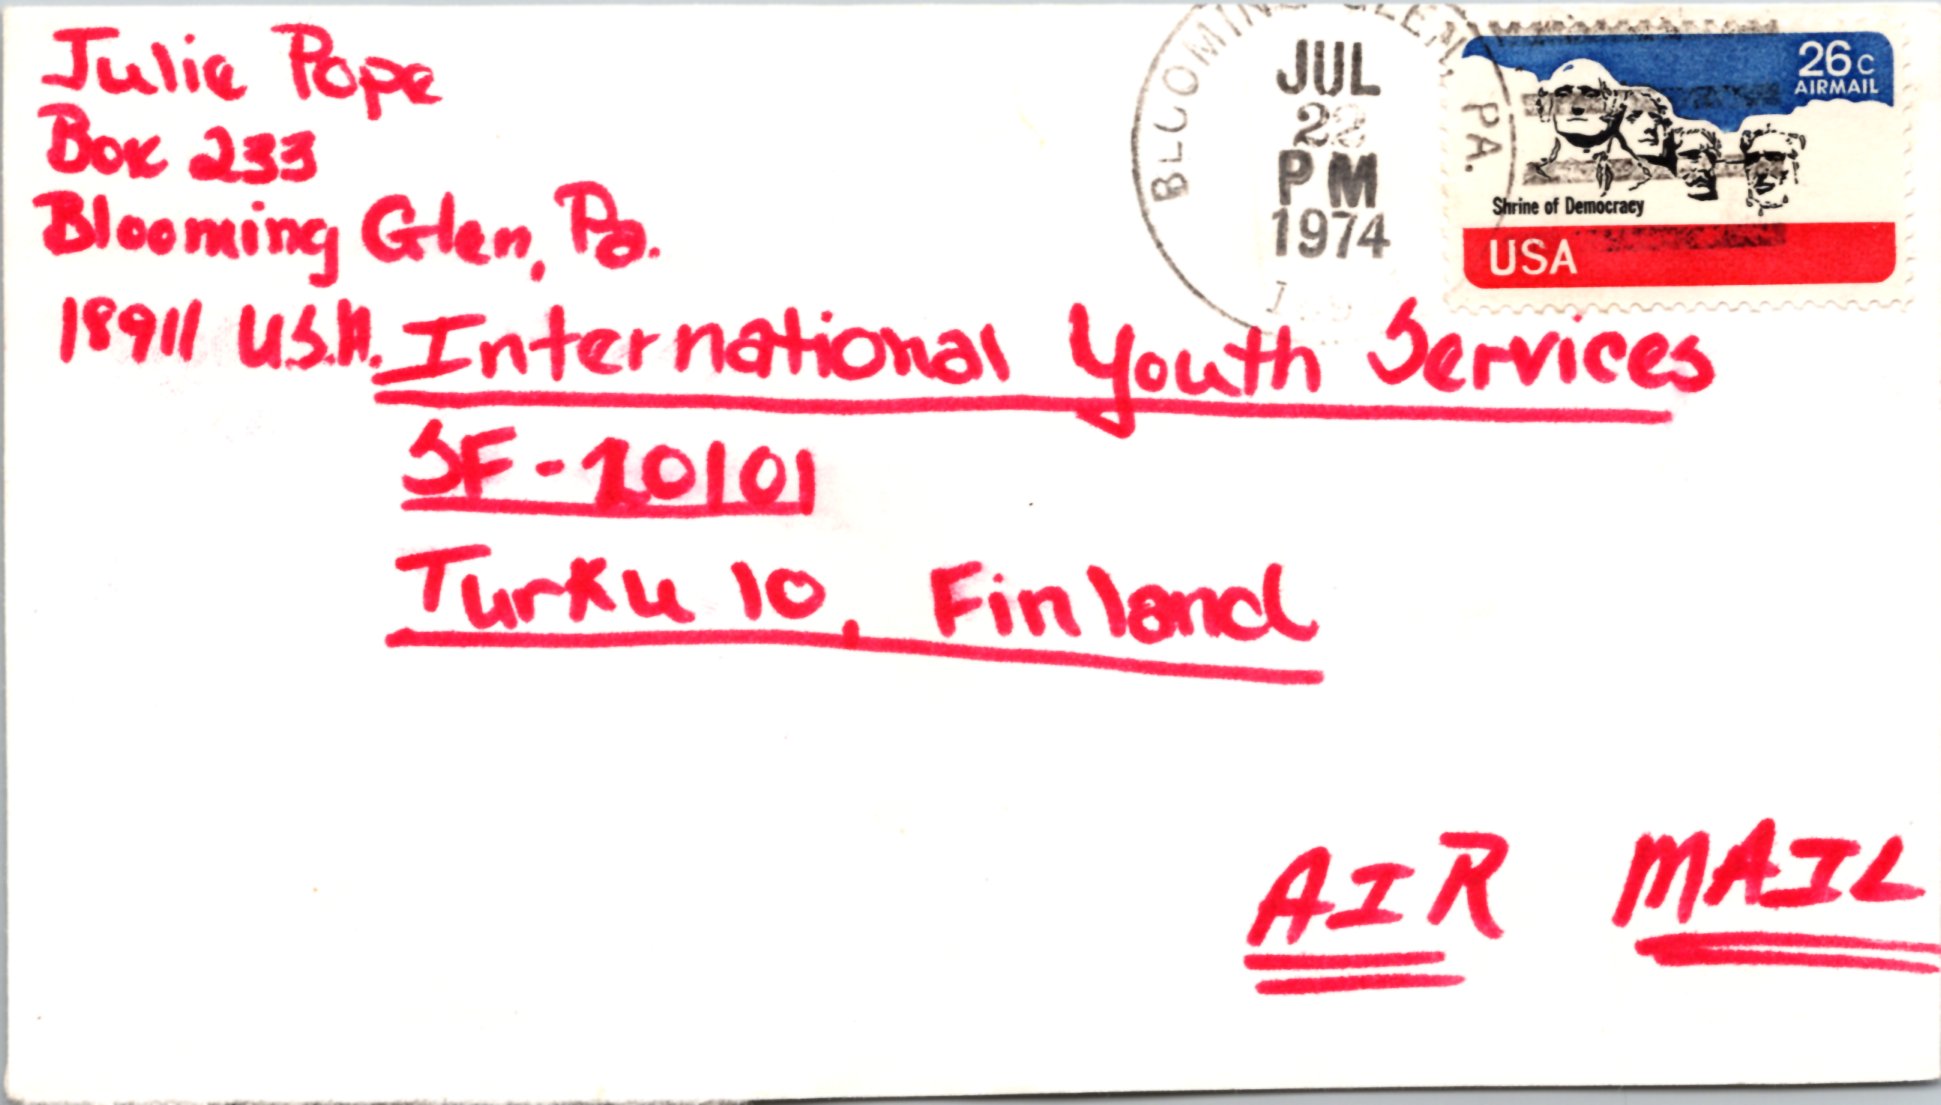 Julie Pope
Box 233
Blooming Glen, Pa.
18911 U.S.A.
BLOOMING GLEN, PA.
JUL
PM
1974
26c
AIRMAIL
Shrine of Democracy
USA
International Youth Services
SF-20101
Turku 10, Finland
AIR MAIL